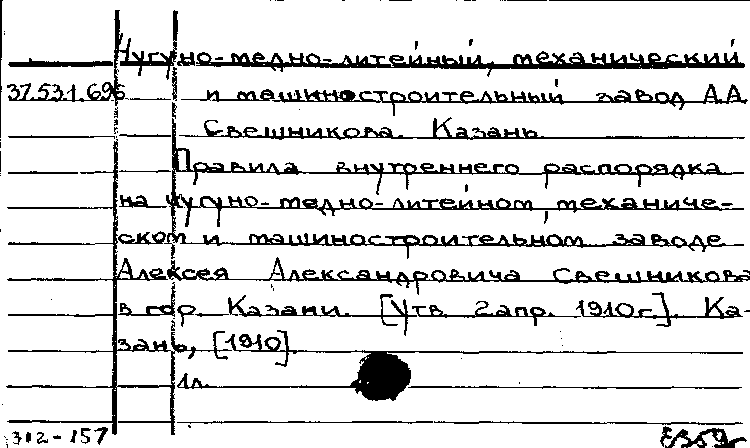 Чугуно-медно-литейный, механический
37.53.1.696 и машиностроительный завод А.А.
Свешникова. Казань.
Правила внутреннего распорядка
на чугуно-медно-литейном, механиче-
ском и машиностроительном заводе
Алексея Александровича Свешникова
в гор. Казани. [Утв. 2 апр. 1910 г.]. Ка-
зань, [1910].
1 л.
312-157